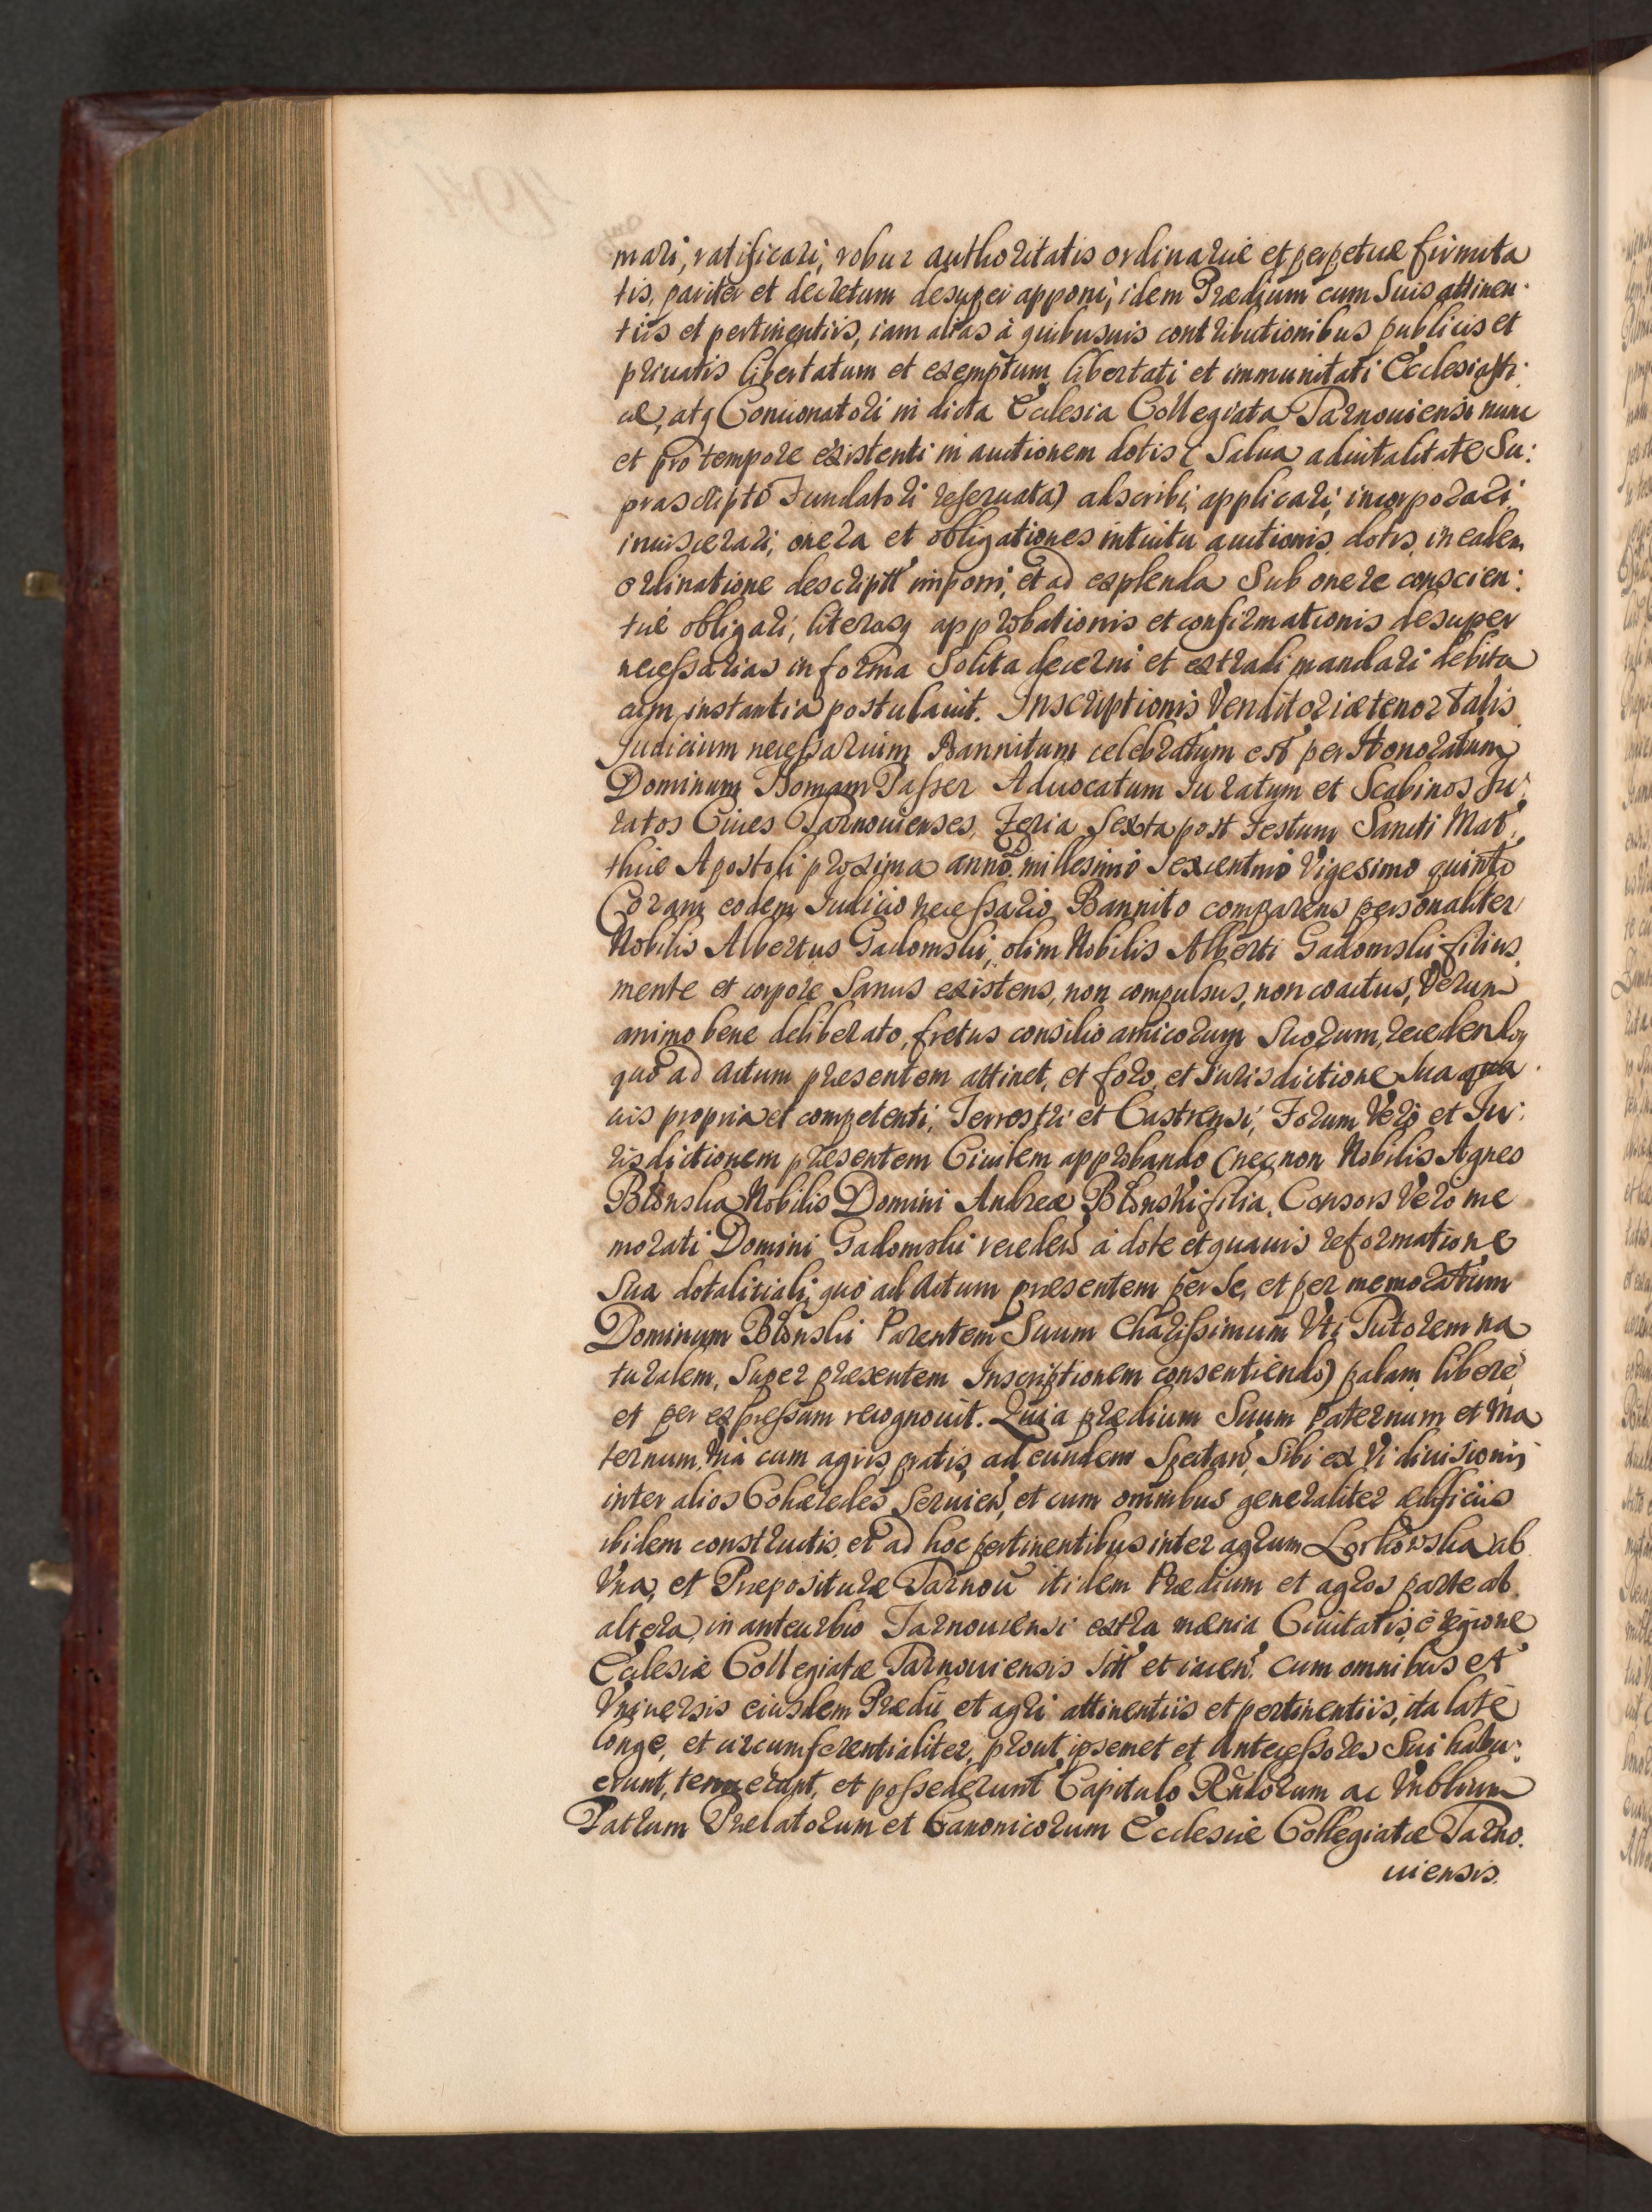 mari, ratificari, robur authoritatis ordinariæ et perpetuæ firmita
tis, pariter et decretum desuper apponi, idem Prædium cum suis attinen:
tiis et pertinentiis, iam alias à quibusuis contributionibus publicis et
priuatis libertatum et exemptum, libertati et immunitati Ecclesiasti:
cæ, atq Concionatori in dicta Ecclesia Collegiata Tarnouiensi nunc
et pro tempore existenti in auctionem dotis (salua aduitalitate Su:
prascripto Fundatori reseruata) adscribi, applicari, incorporari,
inuiscerari, onera et obligationes intuitu auctionis dotis, in eadem
ordinatione descriptt imponi, et ad explenda sub onere conscien:
tiæ obligari, literasq approbationis et confirmationis desuper
necessarias in forma solita decerni et extradi mandari debita
cum instantia postulauit. Inscriptionis Venditoriæ tenor talis.
Iudicium necessarium Bannitum celebratum est per Honoratum
Dominum Thomam Passer Aduocatum Iuratum et Scabinos Iu:
ratos Ciues Tarnouienses, Feria Sexta post Festum Sancti Mat:
thiæ Apostoli proxima anno millesimo sexcentmo Vigesimo quinto
Coram eodem Iudicio necessario Bannito comparens personaliter
Nobilis Albertus Gadomski, olim Nobilis Alberti Gadomski filius,
mente et corpore sanus existens, non compulsus, non coactus, Verum
animo bene deliberato, fretus consilio amicorum suorum, recedendoq
quo ad actum presentem attinet, et foro, et iurisdictione sua qua
uis propria et competenti, Terrestri et Castrensi, Forum Vero et Iu:
risdictionem presentem Ciuilem approbando (necnon Nobilis Agnes
Błonska Nobilis Domini Andreæ Błonski filia, Consors Vero me
morati Domini Gadomski recedens à dote et quauis reformatione
sua dotalitiali, quo ad actum præsentem per se, et per memoratum
Dominum Błonski Parentem Suum Charissimum Vti Tutorem na
turalem, super præsentem Inscriptionem consentiendo) palam libere,
et per expressum recognouit. Quia prædium suum paternum et ma
ternum, Vnà cum agris, pratis, ad eundem spectan, sibi ex Vi diuisionis
inter alios Cohæredes seruien, et cum omnibus generaliter ædificiis
ibidem constructis, et ad hoc pertinentibus inter agrum ab
Vna, et Præpositure Tarnou itidem Prædium et agros parte ab
altera, in anteurbio Tarnouiensi extra mænia Ciuitatis, è regione
Ecclesiæ Collegiatæ Tarnouiensis sitt et iacen, cum omnibus et
Vniuersis eiusdem Prædii et agri attinentiis et pertinentiis, ita late
longe, et circumferentialiter, prout ipsemet et Antecessores sui habu:
erunt, tenuerunt, et possederunt Capitulo Rndorum ac Vnblium
Patrum Prelatorum et Canonicorum Ecclesiæ Collegiatæ Tarno:
uiensis.